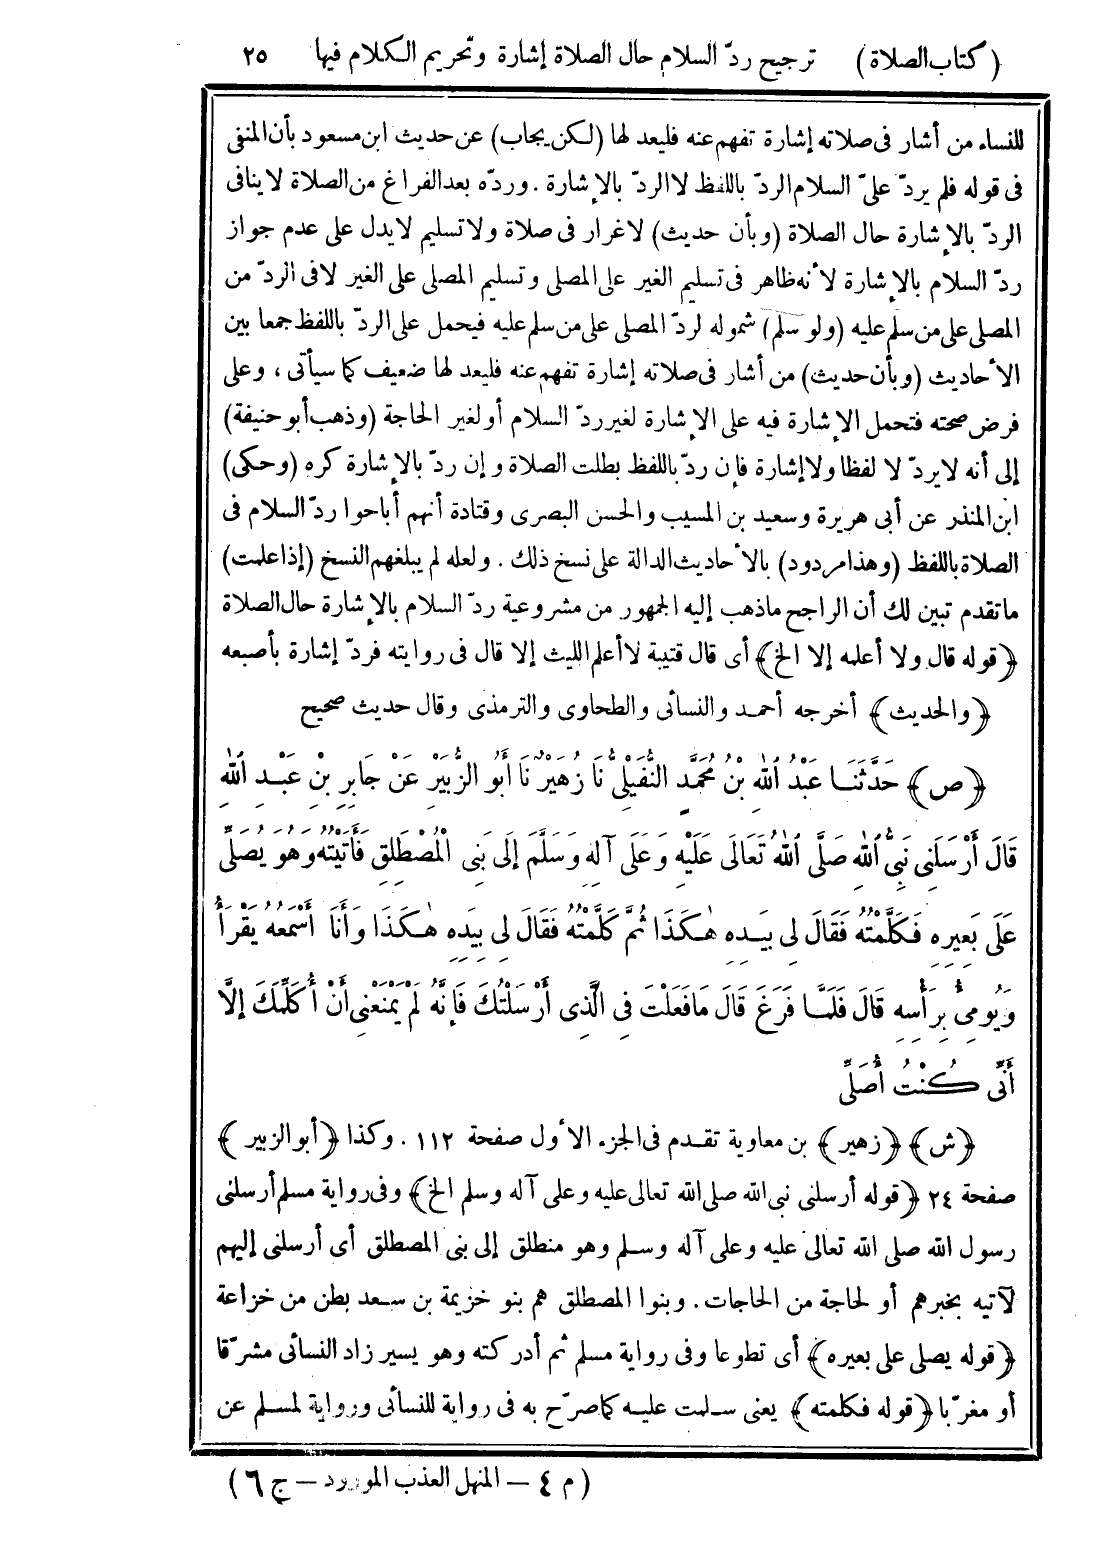 (كتاب الصلاة) ترجيح ردّ السلام حال الصلاة إشارة وتحريم الكلام فيها ٢٥
للنساء من أشار فى صلاته إشارة تفهم عنه فليعد لها (لكن يجاب) عن حديث ابن مسعود بأن المنفى
فى قوله فلم يردّ علىّ السلام الردّ باللفظ لا الردّ بالإشارة . وردّه بعد الفراغ من الصلاة لا ينافى
الردّ بالإشارة حال الصلاة (وبأن حديث) لاغرار فى صلاة ولا تسليم لايدل على عدم جواز
ردّ السلام بالإشارة لأنه ظاهر فى تسليم الغير على المصلى وتسليم المصلى على الغير لافى الردّ من
المصلى على من سلم عليه (ولو سلم) شموله لردّ المصلى على من سلم عليه فيحمل على الردّ باللفظ جمعا بين
الأحاديث (وبأن حديث) من أشار فى صلاته إشارة تفهم عنه فليعد لها ضعيف كما سيأتى ، وعلى
فرض صحته فتحمل الإشارة فيه على الإشارة لغير ردّ السلام أو لغير الحاجة (وذهب أبو حنيفة)
إلى أنه لا يردّ لا لفظا ولا إشارة فإن ردّ باللفظ بطلت الصلاة وإن ردّ بالإشارة كره (وحكى)
ابن المنذر عن أبى هريرة وسعيد بن المسيب والحسن البصرى وقتادة أنهم أباحوا ردّ السلام فى
الصلاة باللفظ (وهذا مردود) بالأحاديث الدالة على نسخ ذلك . ولعله لم يبلغهم النسخ (إذا علمت)
ما تقدم تبين لك أن الراجح ماذهب إليه الجمهور من مشروعية ردّ السلام بالإشارة حال الصلاة
﴿قوله قال ولا أعلمه إلا الخ﴾ أى قال قتيبة لا أعلم الليث إلا قال فى روايته فردّ إشارة بأصبعه
﴿والحديث﴾ أخرجه أحمد والنسائى والطحاوى والترمذى وقال حديث صحيح
﴿ص﴾ حَدَّثَنَا عَبْدُ اللهِ بْنُ مُحَمَّدٍ النُّفَيْلِىُّ نَا زُهَيْرٌ نَا أَبُو الزُّبَيْرِ عَنْ جَابِرِ بْنِ عَبْدِ اللهِ
قَالَ أَرْسَلَنِى نَبِىُّ اللهِ صَلَّى اللهُ تَعَالَى عَلَيْهِ وَعَلَى آلِهِ وَسَلَّمَ إِلَى بَنِى الْمُصْطَلِقِ فَأَتَيْتُهُ وَهُوَ يُصَلِّى
عَلَى بَعِيرِهِ فَكَلَّمْتُهُ فَقَالَ لِى بِيَدِهِ هٰكَذَا ثُمَّ كَلَّمْتُهُ فَقَالَ لِى بِيَدِهِ هٰكَذَا وَأَنَا أَسْمَعُهُ يَقْرَأُ
وَيُومِئُ بِرَأْسِهِ قَالَ فَلَمَّا فَرَغَ قَالَ مَا فَعَلْتَ فِى الَّذِى أَرْسَلْتُكَ فَإِنَّهُ لَمْ يَمْنَعْنِى أَنْ أُكَلِّمَكَ إِلَّا
أَنِّى كُنْتُ أُصَلِّى
﴿ش﴾ ﴿زهير﴾ بن معاوية تقدم فى الجزء الأول صفحة ١١٢ . وكذا ﴿أبو الزبير﴾
صفحة ٢٤ ﴿قوله أرسلنى نبى الله صلى الله تعالى عليه وعلى آله وسلم الخ﴾ وفى رواية مسلم أرسلنى
رسول الله صلى الله تعالى عليه وعلى آله وسلم وهو منطلق إلى بنى المصطلق أى أرسلنى إليهم
لآتيه بخبرهم أو لحاجة من الحاجات . وبنوا المصطلق هم بنو خزيمة بن سعد بطن من خزاعة
﴿قوله يصلى على بعيره﴾ أى تطوعا وفى رواية مسلم ثم أدركته وهو يسير زاد النسائى مشرّقا
أو مغرّبا ﴿قوله فكلمته﴾ يعنى سلمت عليه كما صرّح به فى رواية للنسائى ورواية لمسلم عن
(م ٤ – المنهل العذب المورود – ج ٦)